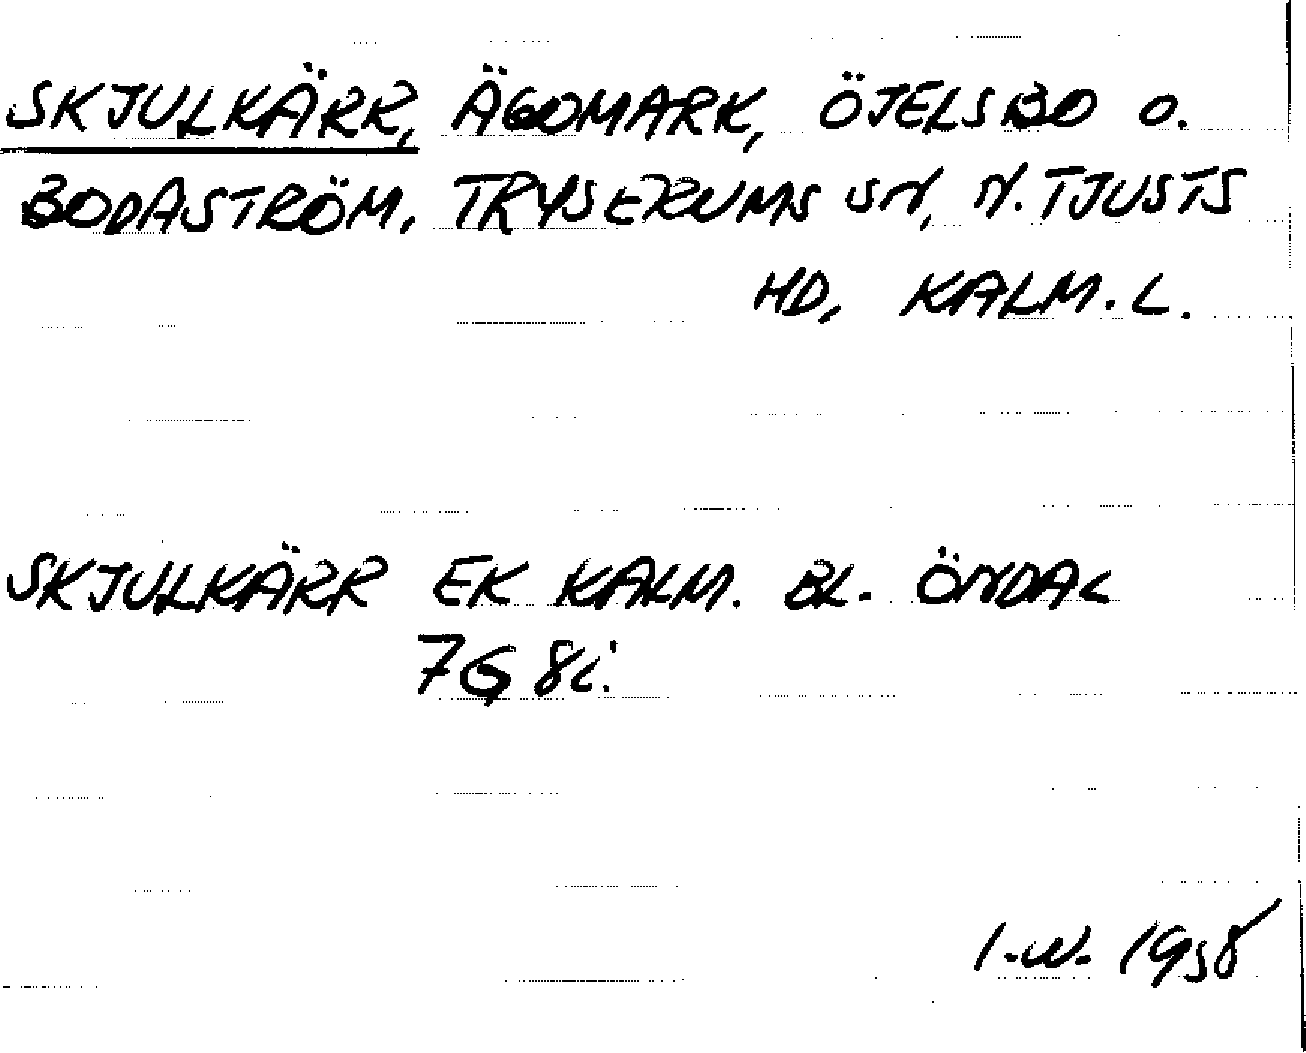 SKJULKÄRR, ÄGOMARK, ÖJELSBO O.
BODASTRÖM, TRYSERUMS SN, N. TJUSTS
HD, KALM. L.
SKJULKÄRR EK KALM. BL. ÖNDAL
7G 8i.
I.W. 1958